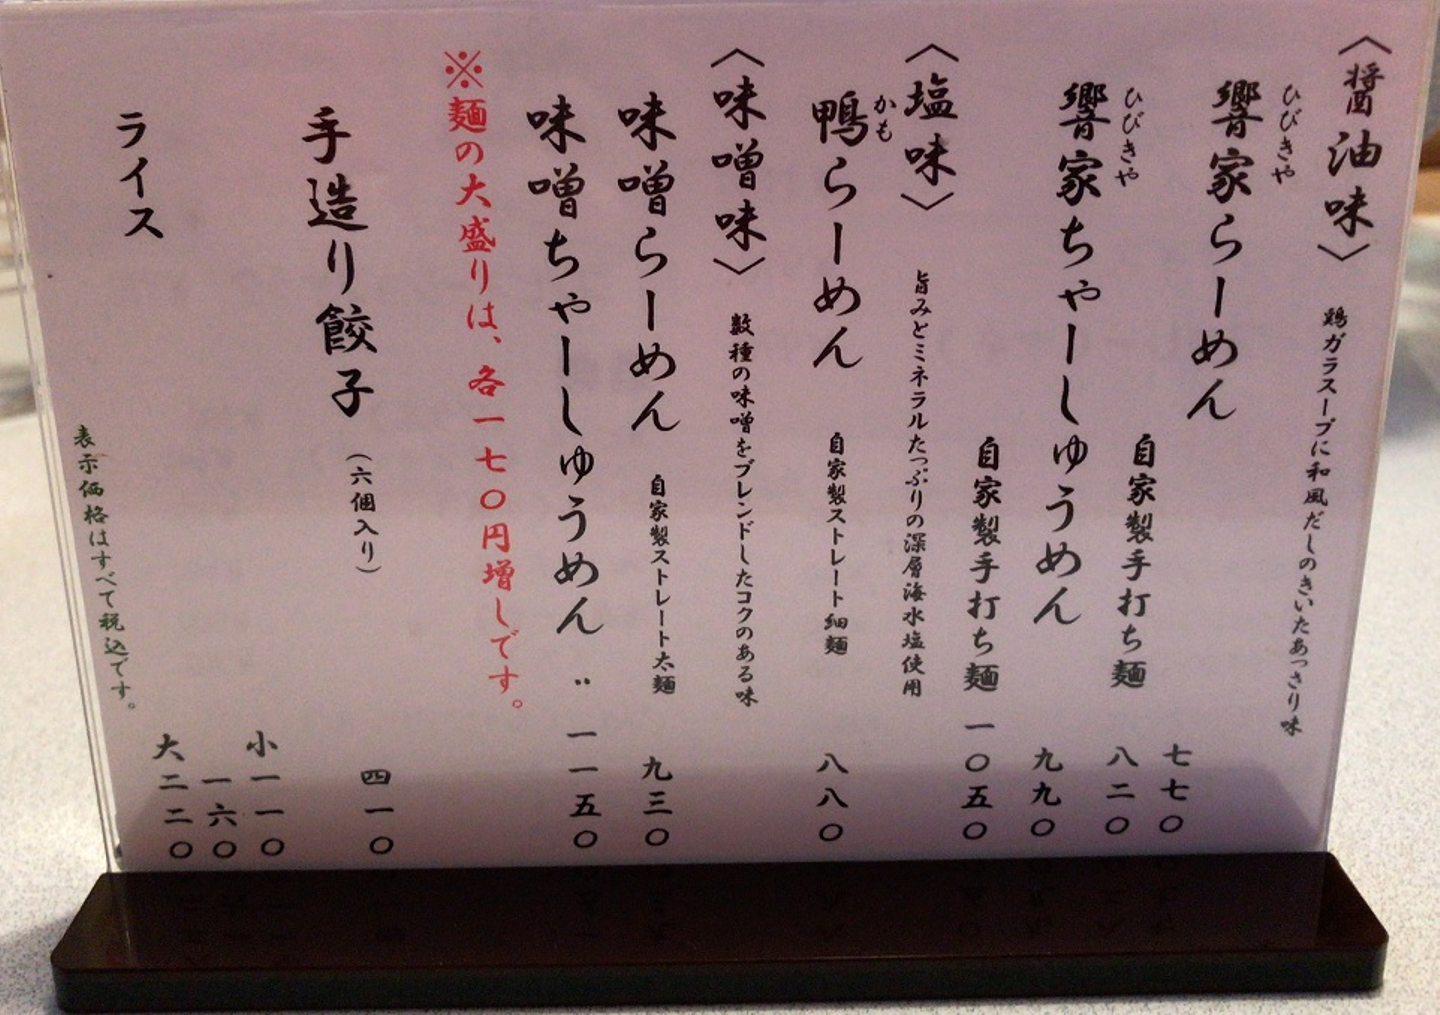 〈醤油味〉 鶏ガラスープに和風だしのきいたあっさり味
ひびきや
響家らーめん 七七〇
自家製手打ち麺 八二〇
ひびきや
響家ちゃーしゅうめん 九九〇
自家製手打ち麺 一〇五〇
〈塩味〉 旨みとミネラルたっぷりの深層海水塩使用
かも
鴨らーめん 自家製ストレート細麺 八八〇
〈味噌味〉 数種の味噌をブレンドしたコクのある味
味噌らーめん 自家製ストレート太麺 九三〇
味噌ちゃーしゅうめん 〃 一一五〇
※麺の大盛りは、各一七〇円増しです。
手造り餃子(六個入り) 四一〇
ライス 小一一〇
一六〇
大二二〇
表示価格はすべて税込です。